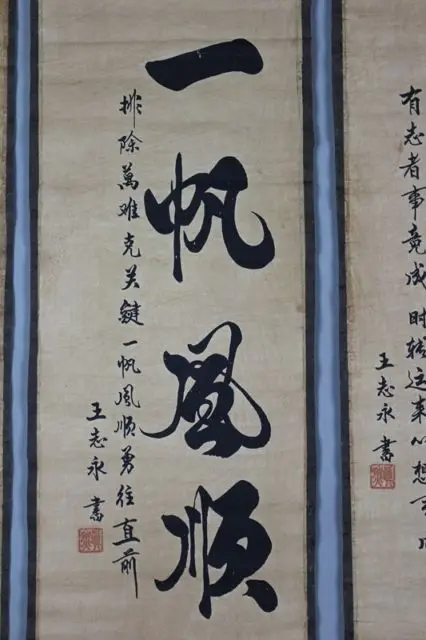 一帆風順
排除萬难克关鍵一帆風順勇往直前
王志永書
有志者事竟成时转运来心想
王志永書